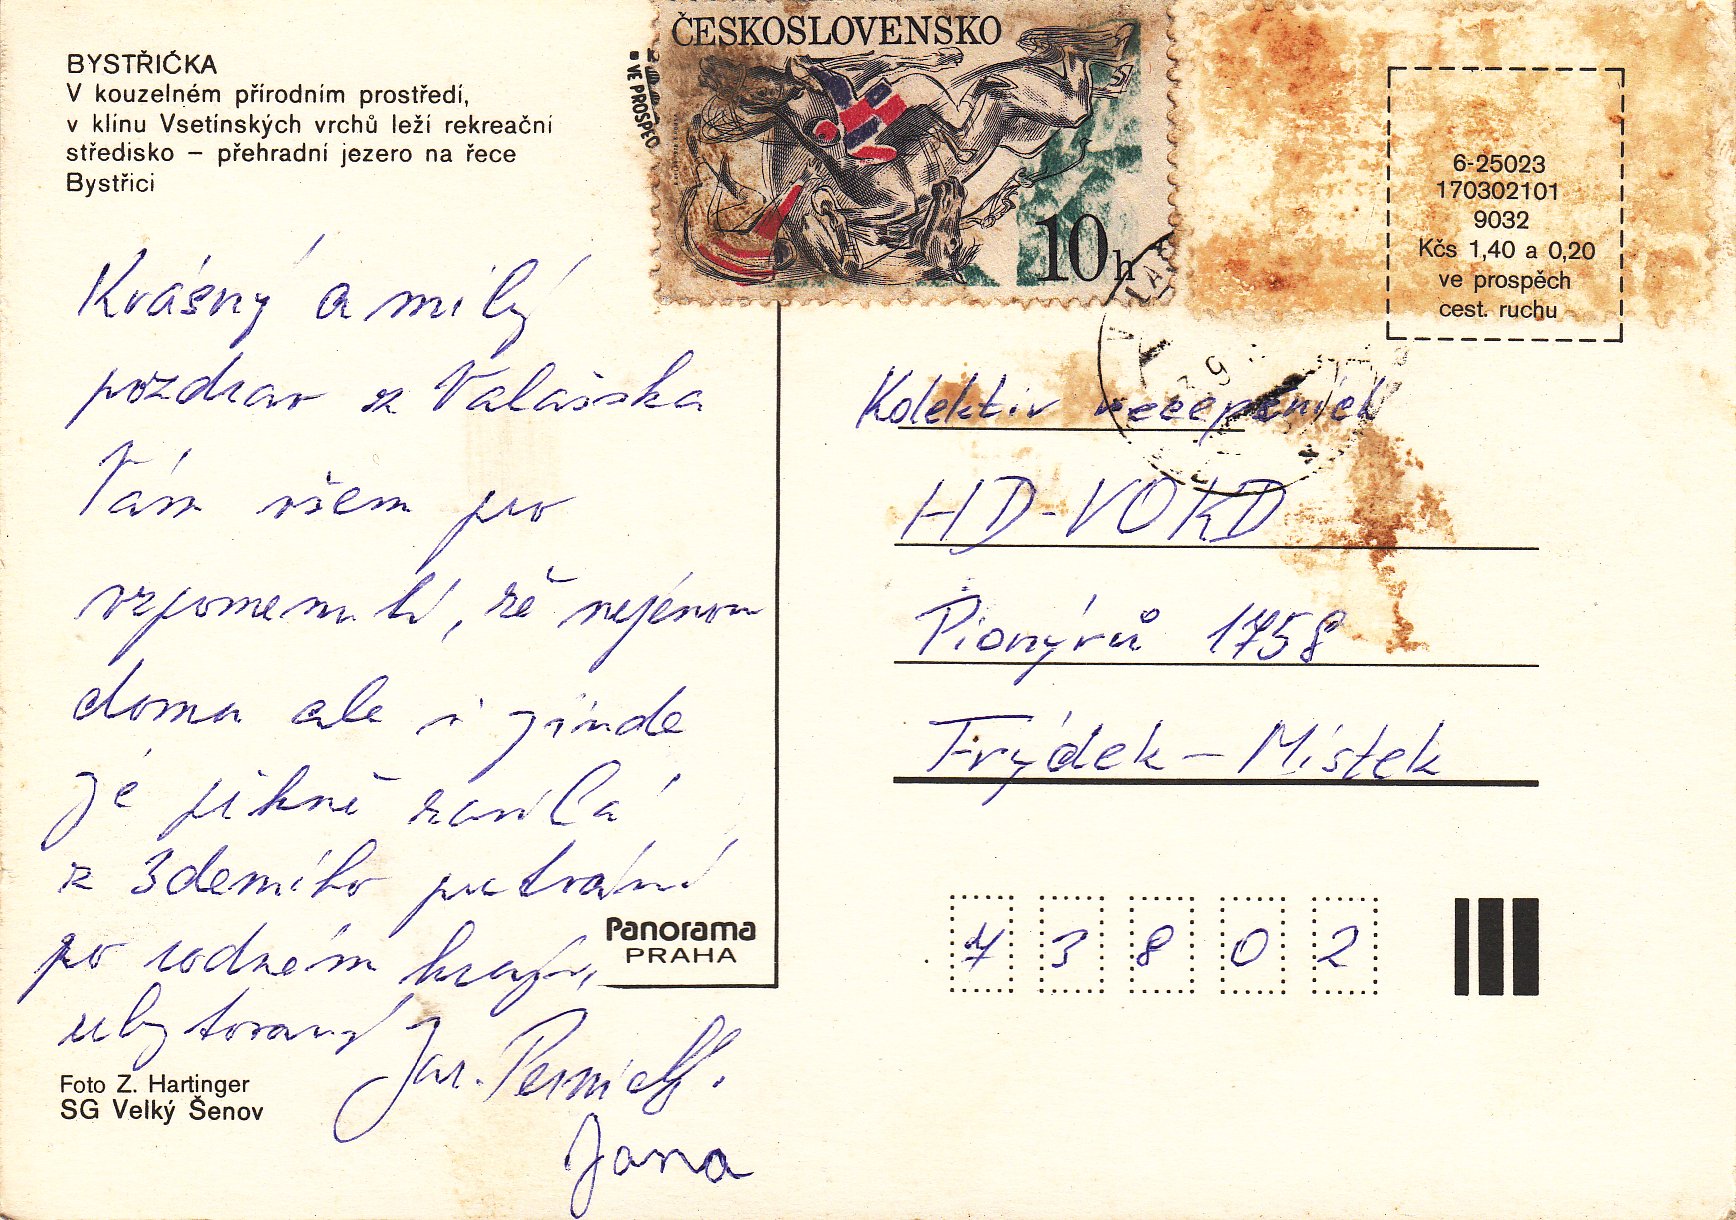 BYSTŘIČKA
V kouzelném přírodním prostředí,
v klínu Vsetínských vrchů leží rekreační
středisko – přehradní jezero na řece
Bystřici
Krásný a milý
pozdrav z Valašska
Vám všem pro
vzpomenutí, že nejenom
doma ale i jinde
je pěkně
z 3denního putování
po rodném kraji,
ubytovaný
Jar.
Jana
Panorama
PRAHA
Foto Z. Hartinger
SG Velký Šenov
ČESKOSLOVENSKO
10h
VE PROSPĚC
6-25023
170302101
9032
Kčs 1,40 a 0,20
ve prospěch
cest. ruchu
Kolektiv recepčních
HD-VOKD
Pionýrů 1758
Frýdek – Místek
73802